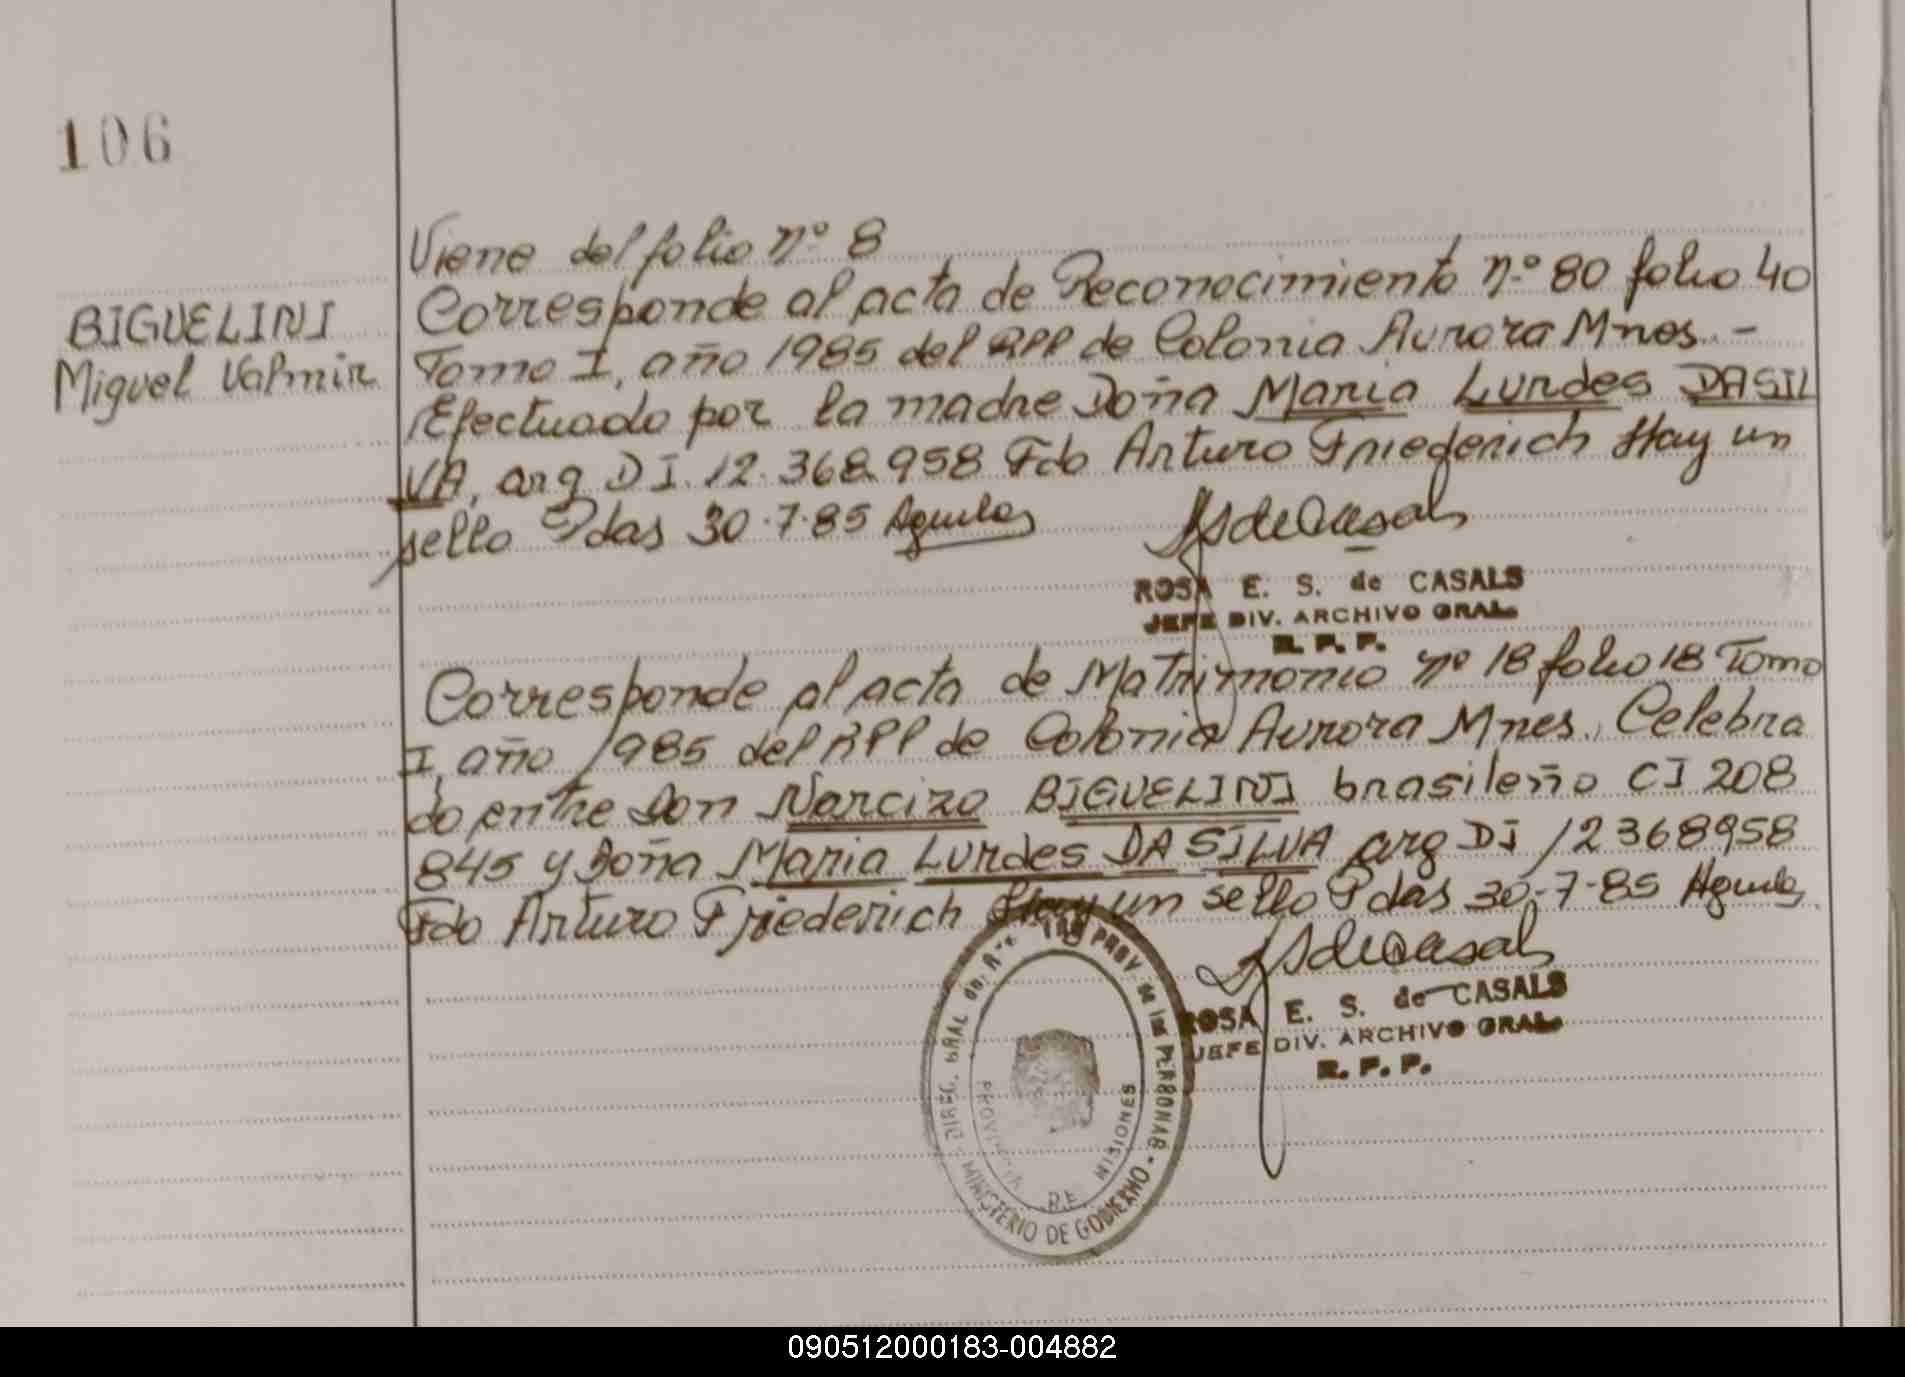 106
BIGUELINI
Miguel Valmir
Viene del folio nº 8
Corresponde al acta de Reconocimiento nº 80 folio 40
Tomo I, año 1985 del RPP de Colonia Aurora Mnes. -
Efectuado por la madre Doña Maria Lurdes DASIL
VA, arg DI. 12.368.958 Fdo Arturo Friederich Hay un
sello Pdas 30.7.85 Aguila
ROSA E. S. de CASALS
JEFE DIV. ARCHIVO GRAL.
R. P. P.
Corresponde al acta de Matrimonio nº 18 folio 18 Tomo
I, año 1985 del RPP de Colonia Aurora Mnes. Celebra
do entre Don Narcizo BIGUELINI brasileño CI 208
845 y Doña Maria Lurdes DA SILVA arg DI 12368958
Fdo Arturo Friederich Hay un sello Pdas 30-7-85 Aguila
ROSA E. S. de CASALS
JEFE DIV. ARCHIVO GRAL.
R. P. P.
DIREC. GRAL. del PROV de las PERSONAS
MINISTERIO DE GOBIERNO
PROVINCIA DE MISIONES
090512000183-004882